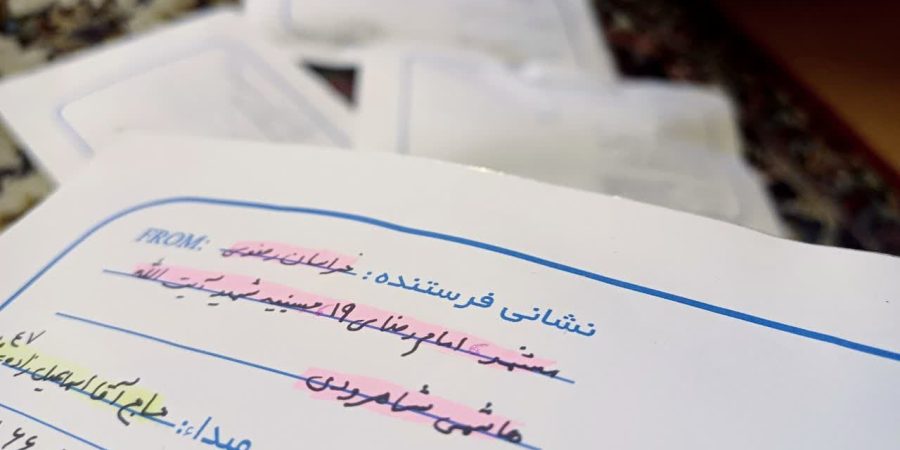 نشانی فرستنده: خراسان رضوی FROM:
مشهد، امام رضای ۱۹، حسینیه شهید آیت الله
هاشمی شاهرودی
مبداء: حاج آقا اسماعیل زاده ۴۷
۶۶